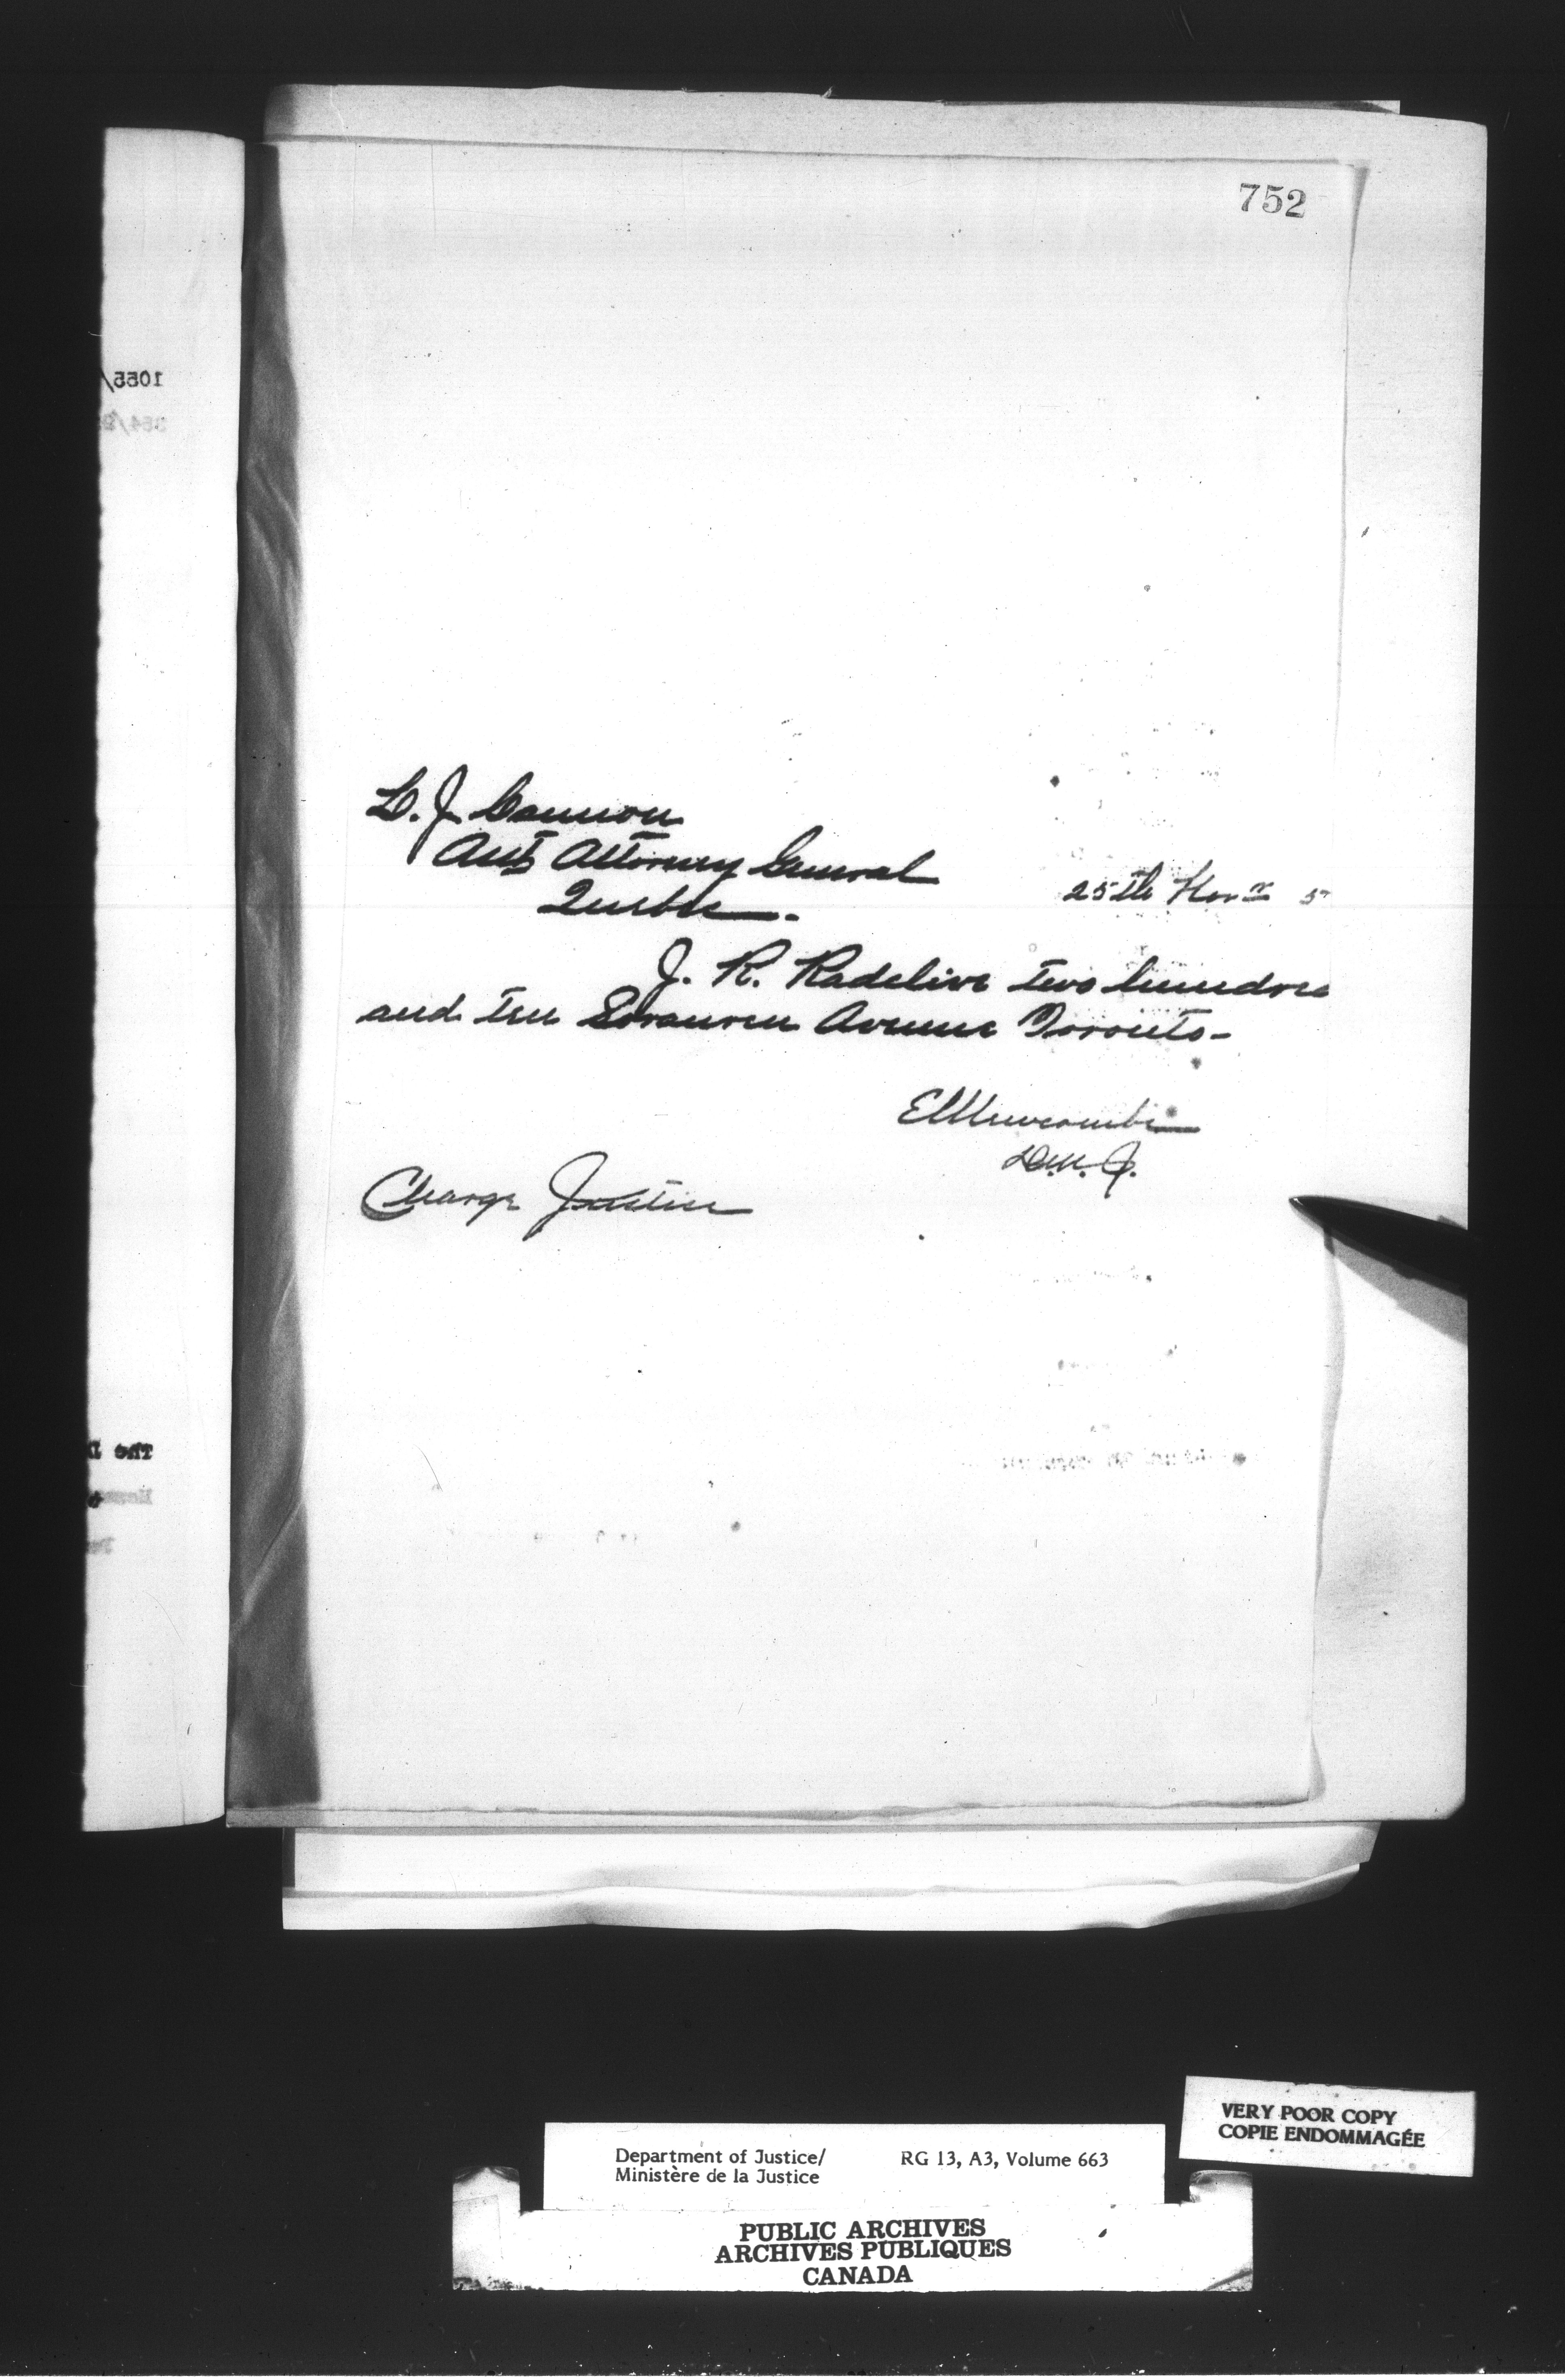 752
L. J. Cannon
Asst Attorney General
Quebec.
25th Novr 5
J. R. Radclive two hundred
and ten Sorauren Avenue Toronto-
E L Newcombe
D.M.J.
Charge Justice
1055/
The D
VERY POOR COPY
COPIE ENDOMMAGÉE
Department of Justice/
Ministère de la Justice
RG 13, A3, Volume 663
PUBLIC ARCHIVES
ARCHIVES PUBLIQUES
CANADA